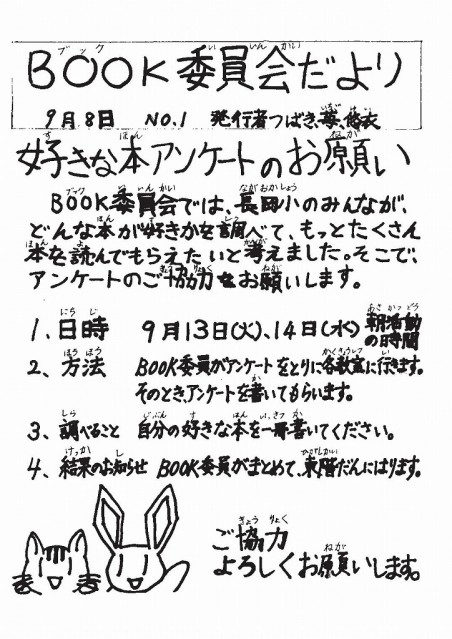 BOOK委員会だより
9月8日 NO.1 発行者つばき、苺、悠衣
好きな本アンケートのお願い
BOOK委員会では、長岡小のみんなが、
どんな本が好きかを調べて、もっとたくさん
本を読んでもらえたいと考えました。そこで、
アンケートのご協力をお願いします。
1、日時 9月13日(火)、14日(水) 朝活動の時間
2、方法 BOOK委員がアンケートをとりに各教室に行きます。
そのとき、アンケートを書いてもらいます。
3、調べること 自分の好きな本を一冊書いてください。
4、結果のお知らせ BOOK委員がまとめて、東階だんにはります。
ご協力
よろしくお願いします。